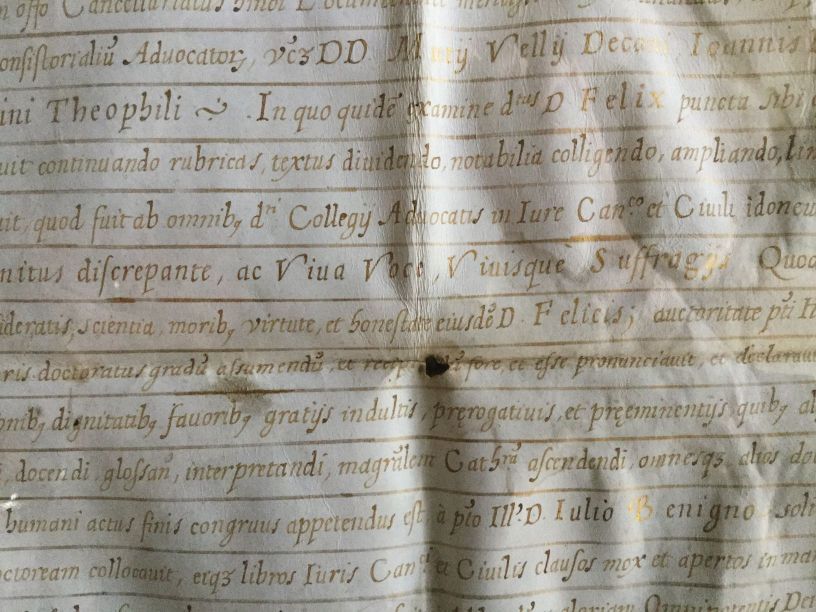 offo Cancellariatus
onsistorialiũ Advocatoꝝ, vꝫ DD. Mutij Vellij Decani Ioannis
ini Theophili . In quo quidẽ examine dᵗᵘˢ D Felix puncta sibi
uit continuando rubricas, textus diuidendo, notabilia colligendo, ampliando, lim
uit, quod fuit ab omnibꝫ dⁿⁱ Collegij Aduocatis in Iure Canᶜᵒ et Ciuili idoneu
nitus discrepante, ac Viua Voce, Viuisque Suffragijs Quod
ideratis, scientia, moribꝫ virtute, et honestate eiusdẽ D. Felicis; auctoritate pᵗⁱ
ris doctoratus gradũ assumendũ, et fore, et esse pronunciauit, et declarauit
onibꝫ dignitatibꝫ fauoribꝫ gratijs indultis, pręrogatiuis, et pręeminentijs, quibꝫ al
docendi glossanⁱ, interpretandi, magrãlem Cathʳᵃ ascendendi, omnesqꝫ alios do
humani actus finis congruus appetendus est, à pᵗᵒ Illʳ D. Iulio Benigno soli
octoream collocauit, eiqꝫ libros Iuris Canᶜⁱ et Ciuilis clausos mox et apertos in man
gloriam Omnipotentis Dei